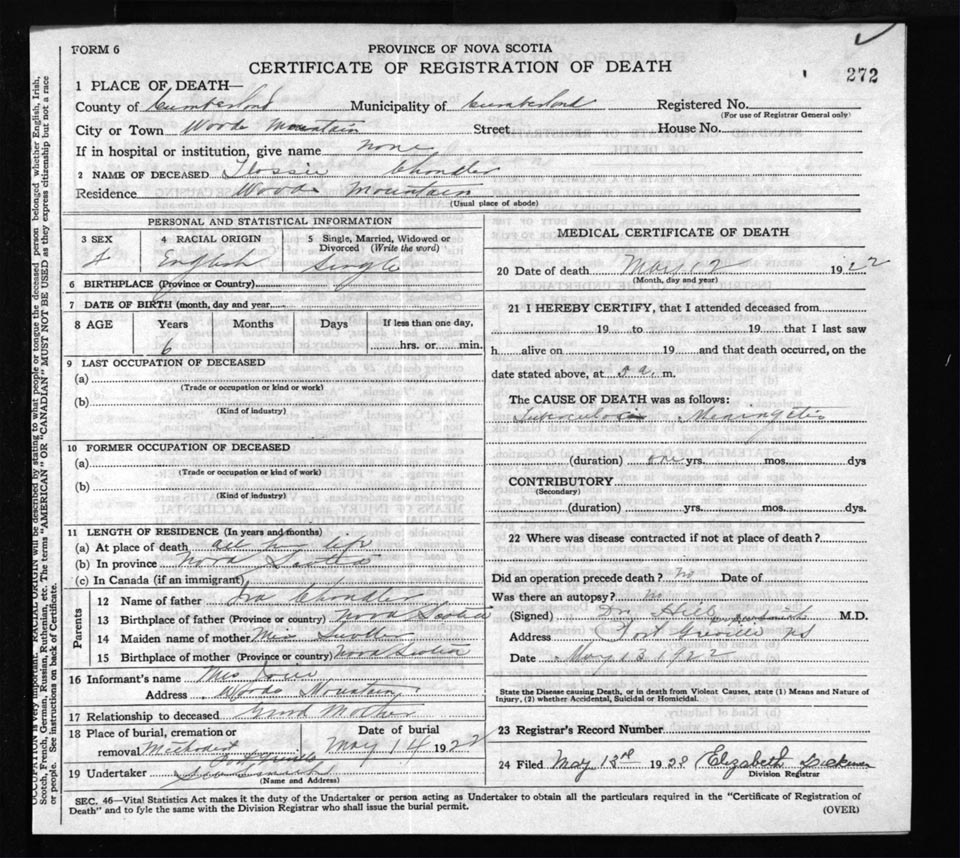 FORM 6
PROVINCE OF NOVA SCOTIA
CERTIFICATE OF REGISTRATION OF DEATH
272
1 PLACE OF DEATH—
County of Cumberland Municipality of Cumberland Registered No.
(For use of Registrar General only)
City or Town Woods Mountain Street House No.
If in hospital or institution, give name None
2 NAME OF DECEASED Flossie Chandler
Residence Woods Mountain
(Usual place of abode)
PERSONAL AND STATISTICAL INFORMATION
3 SEX 4 RACIAL ORIGIN 5 Single, Married, Widowed or Divorced (Write the word)
F English Single
6 BIRTHPLACE (Province or Country)
7 DATE OF BIRTH (month, day and year)
8 AGE Years Months Days If less than one day,
6 hrs. or min.
9 LAST OCCUPATION OF DECEASED
(a)
(Trade or occupation or kind or work)
(b)
(Kind of industry)
10 FORMER OCCUPATION OF DECEASED
(a)
(Trade or occupation or kind of work)
(b)
(Kind of industry)
11 LENGTH OF RESIDENCE (In years and months)
(a) At place of death all her life
(b) In province Nova Scotia
(c) In Canada (if an immigrant)
Parents
12 Name of father Ira Chandler
13 Birthplace of father (Province or country) Nova Scotia
14 Maiden name of mother Miss
15 Birthplace of mother (Province or country) Nova Scotia
16 Informant's name Mrs
Address Woods Mountain
17 Relationship to deceased Grand Mother
18 Place of burial, cremation or removal Methodist Port Greville
Date of burial
May 14 1922
19 Undertaker
(Name and Address)
MEDICAL CERTIFICATE OF DEATH
20 Date of death May 12 1922
(Month, day and year)
21 I HEREBY CERTIFY, that I attended deceased from
19 to 19 that I last saw
h alive on 19 and that death occurred, on the
date stated above, at 5 a. m.
The CAUSE OF DEATH was as follows:
Tuberculosis Meningitis
(duration) one yrs. mos. dys
CONTRIBUTORY
(Secondary)
(duration) yrs. mos. dys.
22 Where was disease contracted if not at place of death?
Did an operation precede death? No Date of
Was there an autopsy? No
(Signed) Dr Hill M.D.
Address Port Greville NS
Date May 13 1922
State the Disease causing Death, or in death from Violent Causes, state (1) Means and Nature of
Injury, (2) whether Accidental, Suicidal or Homicidal.
23 Registrar's Record Number
24 Filed May 13th 1922 Elizabeth
Division Registrar
SEC. 46—Vital Statistics Act makes it the duty of the Undertaker or person acting as Undertaker to obtain all the particulars required in the "Certificate of Registration of
Death" and to fyle the same with the Division Registrar who shall issue the burial permit.
(OVER)
OCCUPATION is very important. RACIAL ORIGIN will be described by stating to what people or tongue the deceased person belonged whether English, Irish,
Scotch, French, German, Russian, Ruthenian, etc. The terms "AMERICAN" OR "CANADIAN" MUST NOT BE USED as they express citizenship but not a race
or people. See instructions on back of Certificate.